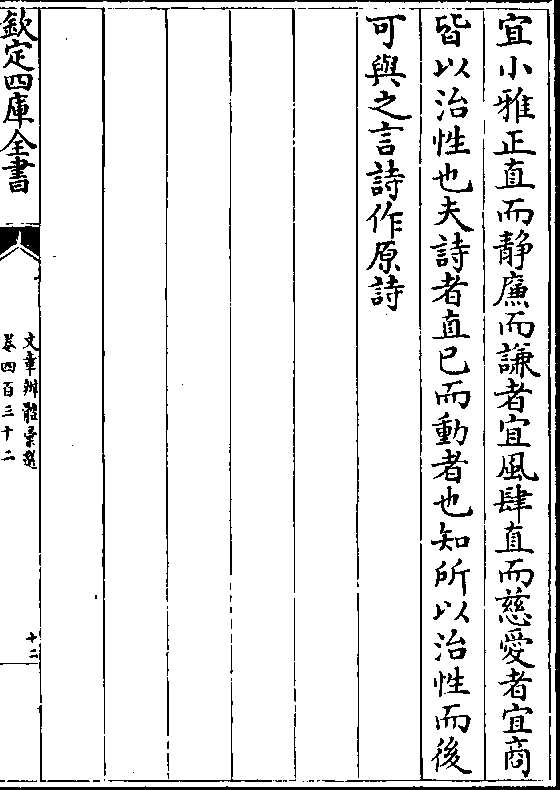 宜小雅正直而静廉而謙者宜風肆直而慈愛者宜商
皆以治性也夫詩者直已而動者也知所以治性而後
可與之言詩作原詩
欽定四庫全書
文章辨體彙選
卷四百三十二
十二